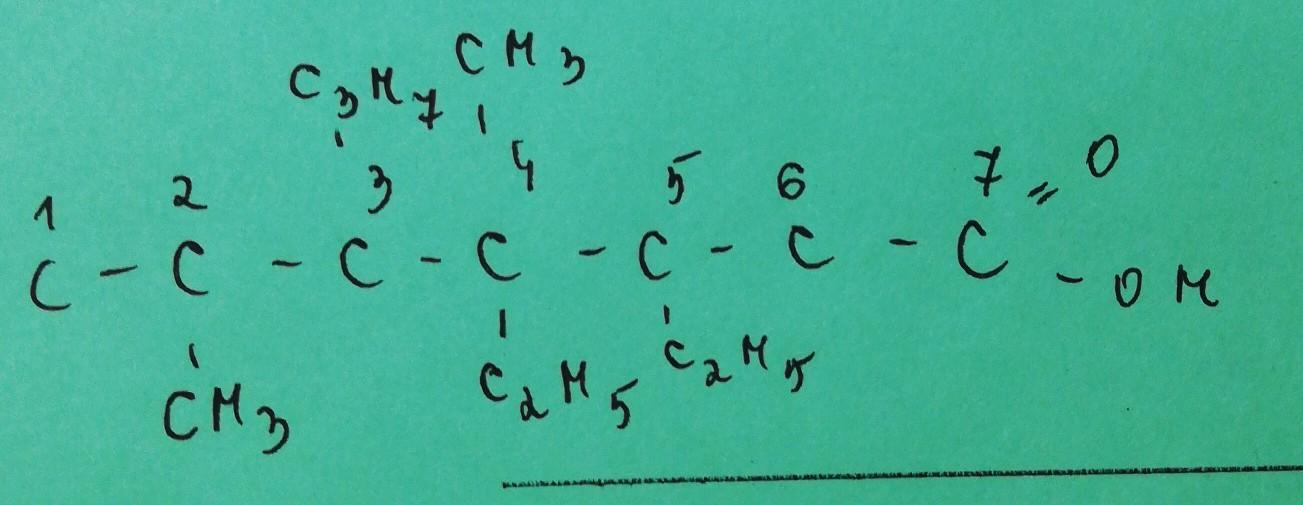 C3H7 CH3
1 2 3 4 5 6 7 O
C - C - C - C - C - C - C = O - OH
CH3 C2H5 C2H5